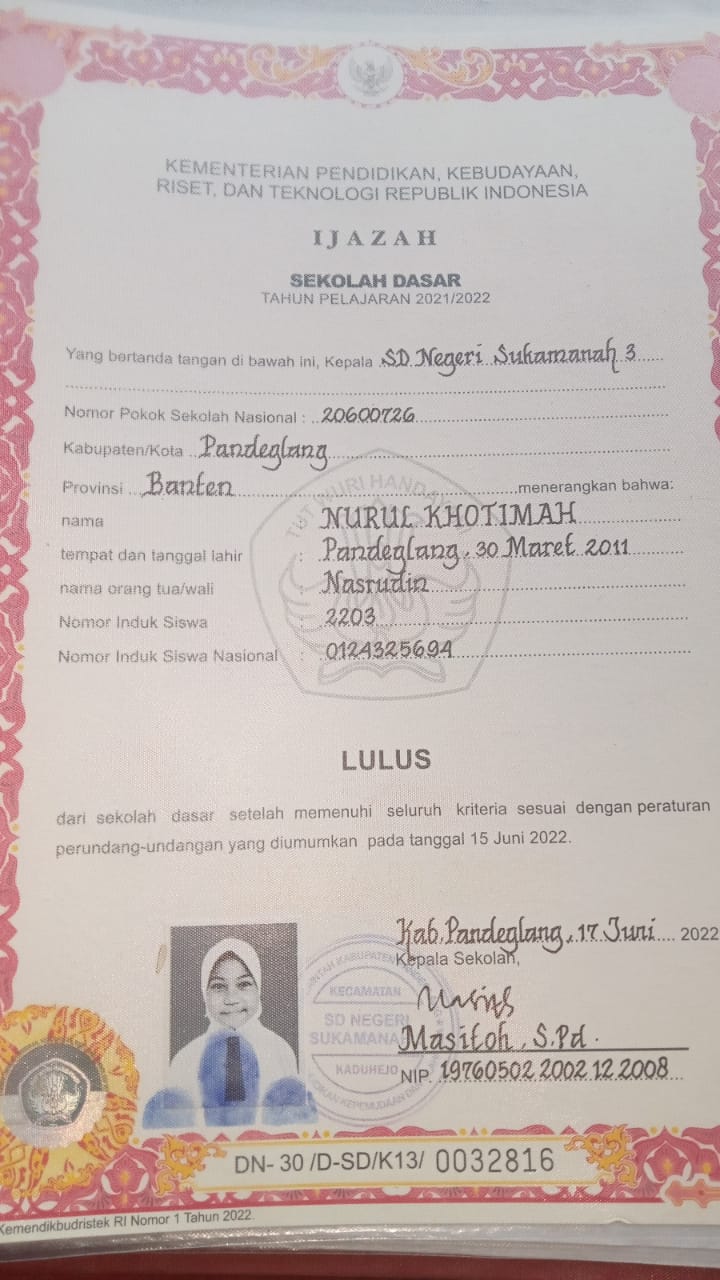 KEMENTERIAN PENDIDIKAN, KEBUDAYAAN,
RISET, DAN TEKNOLOGI REPUBLIK INDONESIA
IJAZAH
SEKOLAH DASAR
TAHUN PELAJARAN 2021/2022
Yang bertanda tangan di bawah ini, Kepala SD Negeri Sukamanah 3
Nomor Pokok Sekolah Nasional : 20600726
Kabupaten/Kota Pandeglang
Provinsi Banten menerangkan bahwa:
TUT WURI HANDAY
nama : NURUL KHOTIMAH
tempat dan tanggal lahir : Pandeglang, 30 Maret 2011
nama orang tua/wali : Nasrudin
Nomor Induk Siswa : 2203
Nomor Induk Siswa Nasional : 0124325694
LULUS
dari sekolah dasar setelah memenuhi seluruh kriteria sesuai dengan peraturan
perundang-undangan yang diumumkan pada tanggal 15 Juni 2022.
Kab. Pandeglang, 17 Juni 2022
Kepala Sekolah,
KECAMATAN
SD NEGERI
SUKAMANA
KADUHEJO
Masitoh, S.Pd.
NIP. 19760502 2002 12 2008
DN- 30 /D-SD/K13/ 0032816
Kemendikbudristek RI Nomor 1 Tahun 2022